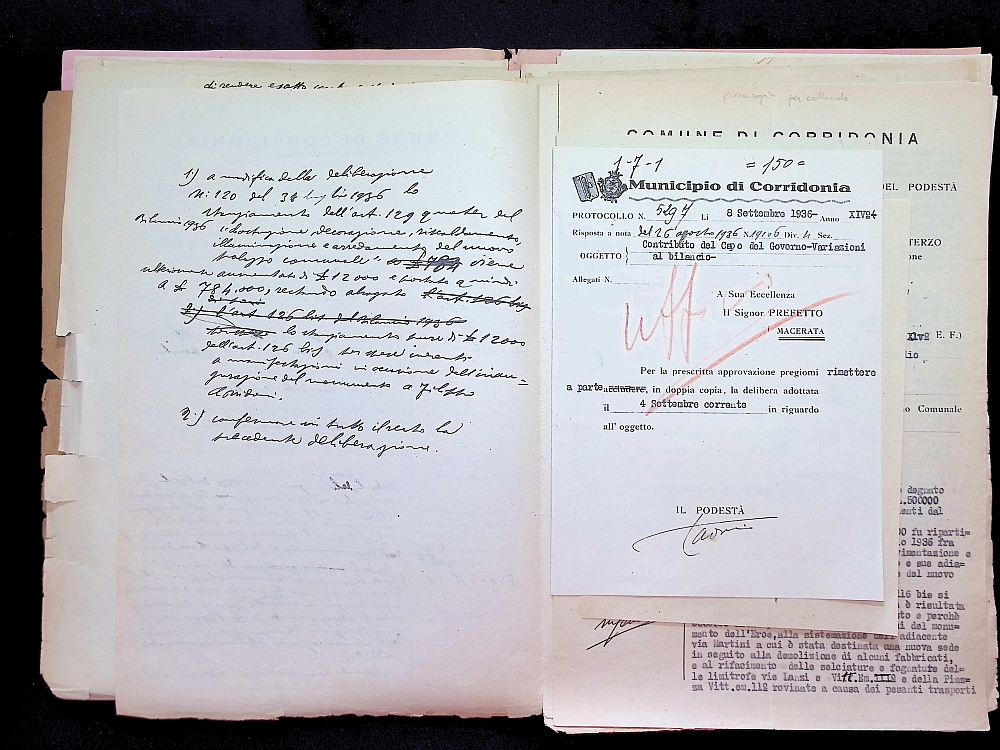 di rendere esatto
1) a modifica della deliberazione
n: 120 del 31 luglio 1936 lo
stanziamento dell'art. 129 quater del
Bilancio 1936 "Costruzione, decorazione, riscaldamento,
illuminazione e arredamento del nuovo
palazzo comunale" viene
ulteriormente aumentato di £ 12000 e portato quindi
a £ 784.000, restando abrogato l'art. 126 bis
2) l'art. 126 bis del bilancio 1936
lo stanziamento di £ 12000
dell'art. 126 bis per spese inerenti
a manifestazioni in occasione dell'inau-
gurazione del monumento a Filippo
Corridoni.
2) confermare in tutto il resto la
precedente deliberazione.
prima copia per collaudo
COMUNE DI CORRIDONIA
1-7-1 =150=
Municipio di Corridonia
PROTOCOLLO N. 5297 Li 8 Settembre 1936- Anno XIVº
Risposta a nota del 26 agosto 1936 N. 19106 Div. 4 Sez.
OGGETTO Contributo del Capo del Governo-Variazioni
al bilancio-
Allegati N.
A Sua Eccellenza
Il Signor PREFETTO
MACERATA
uff
Per la prescritta approvazione pregiomi rimettere
a parte accludere, in doppia copia, la delibera adottata
il 4 Settembre corrente in riguardo
all'oggetto.
IL PODESTÀ
DEL PODESTÀ
TERZO
one
XIVº E. F.)
lio
o Comunale
degnato
.500000
enti dal
00 fu riparti=
o 1936 fra
vimentazione e
e sue adia=
e del nuovo
116 bis si
è risultata
to e perchè
i del monu=
mento dell'Eroe, alla sistemazione dell'adiacente
via Martini a cui è stata destinata una nuova sede
in seguito alla demolizione di alcuni fabbricati,
e al rifacimento delle selciature e fognature del=
le limitrofe vie Lanzi e Vitt.Em.IIIº e della Piaz=
za Vitt.em.IIº rovinate a causa dei pesanti trasporti